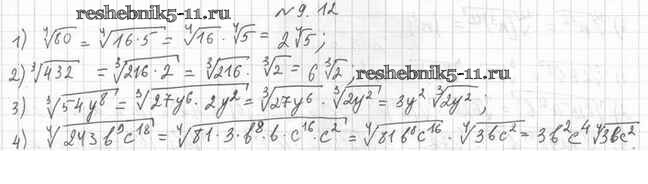 www.reshebnik5-11.ru
№ 9.12
1) ⁴√80 = ⁴√(16·5) = ⁴√16 · ⁴√5 = 2 ⁴√5;
2) ³√432 = ³√(216·2) = ³√216 · ³√2 = 6 ³√2; www.reshebnik5-11.ru
3) ³√(54y⁸) = ³√(27y⁶·2y²) = ³√(27y⁶) · ³√(2y²) = 3y² ³√(2y²);
4) ⁴√(243b⁹c¹⁸) = ⁴√(81·3·b⁸·b·c¹⁶·c²) = ⁴√(81b⁸c¹⁶) · ⁴√(3bc²) = 3b²c⁴ ⁴√(3bc²).